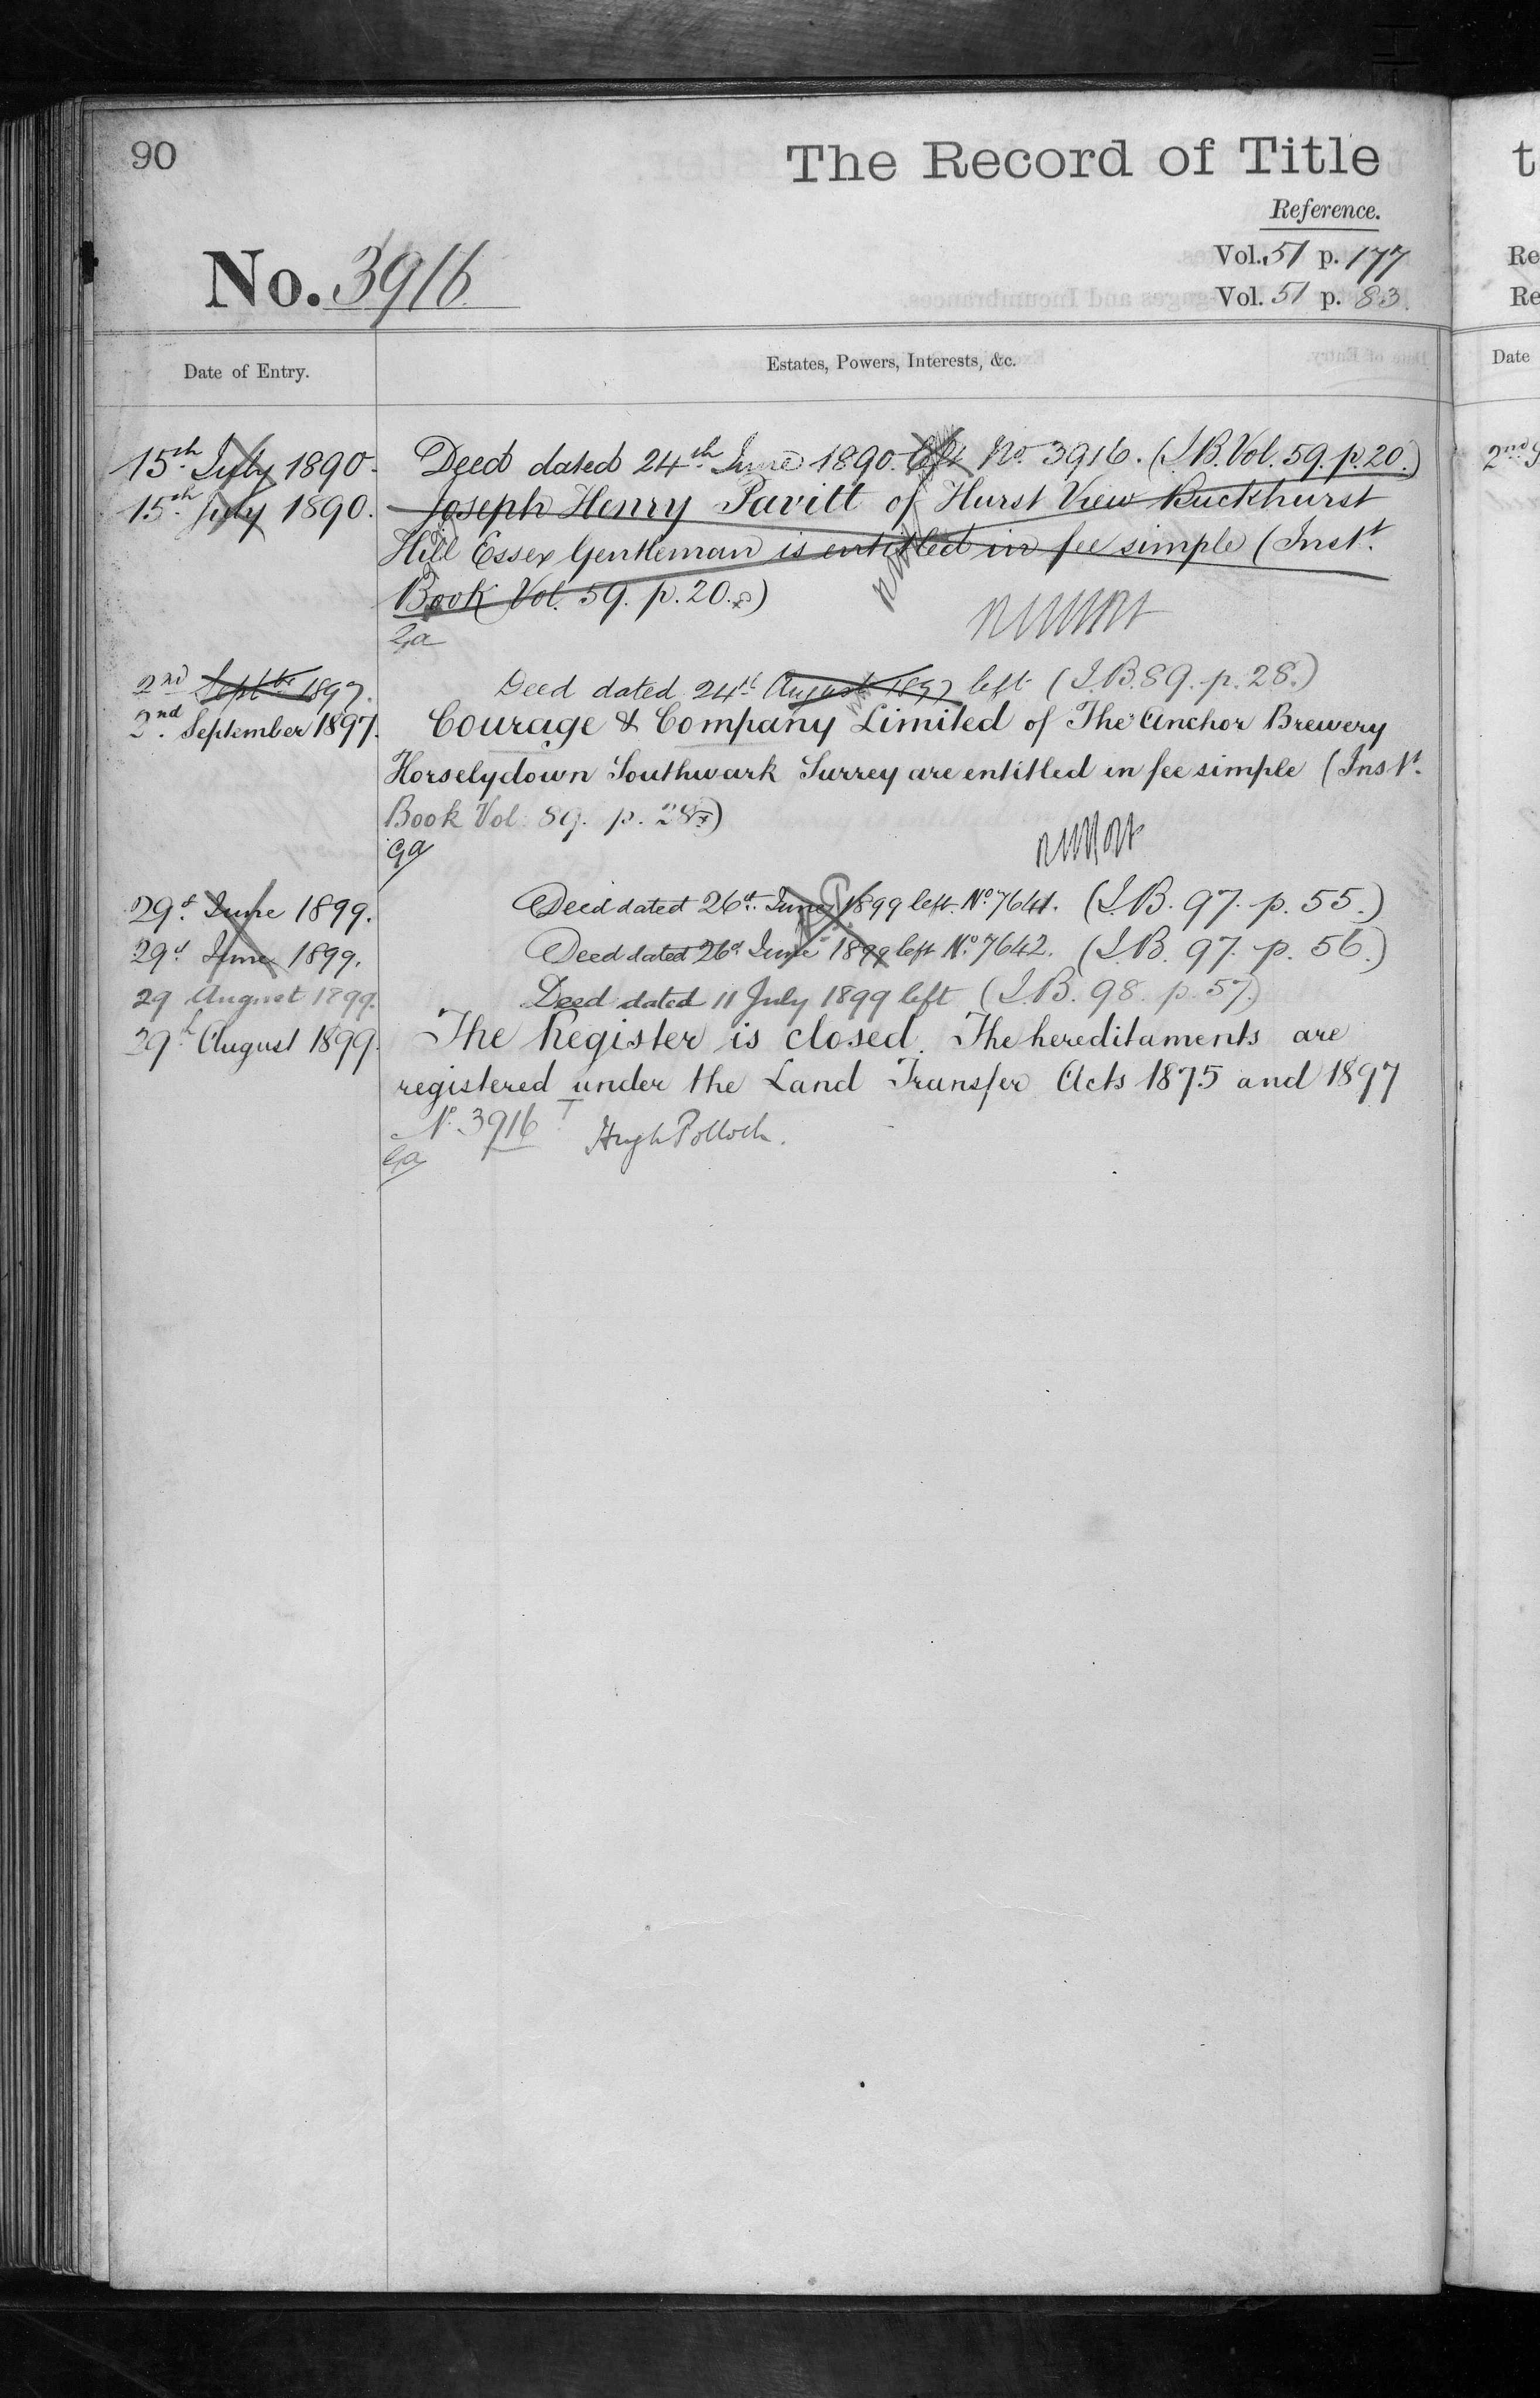 90
The Record of Title
Reference.
No. 3916
Vol. 51 p. 177
Vol. 51 p. 83.
Date of Entry.
Estates, Powers, Interests, &c.
15th July 1890. Deed dated 24th June 1890 left No 3916. (I.B. Vol. 59. p. 20.)
15th July 1890. Joseph Henry Pavitt of Hurst View Buckhurst
Hill Essex Gentleman is entitled in fee simple (Inst.
Book Vol. 59. p. 20.)
Ga
2nd Septbr 1897. Deed dated 24th August 1897 left (I.B. 89. p. 28.)
2nd September 1897. Courage & Company Limited of The Anchor Brewery
Horselydown Southwark Surrey are entitled in fee simple (Inst.
Book Vol. 89. p. 28)
Ga
29th June 1899. Deed dated 26th June 1899 left No 7641. (I.B. 97. p. 55.)
29th June 1899. Deed dated 26th June 1899 left No. 7642. (I.B. 97. p. 56.)
29 August 1899. Deed dated 11 July 1899 left (I.B. 98. p. 57.)
29th August 1899. The Register is closed. The hereditaments are
registered under the Land Transfer Acts 1875 and 1897
No. 3916 Hugh Pollock.
Ga
t
Re
Re
Date
2nd S